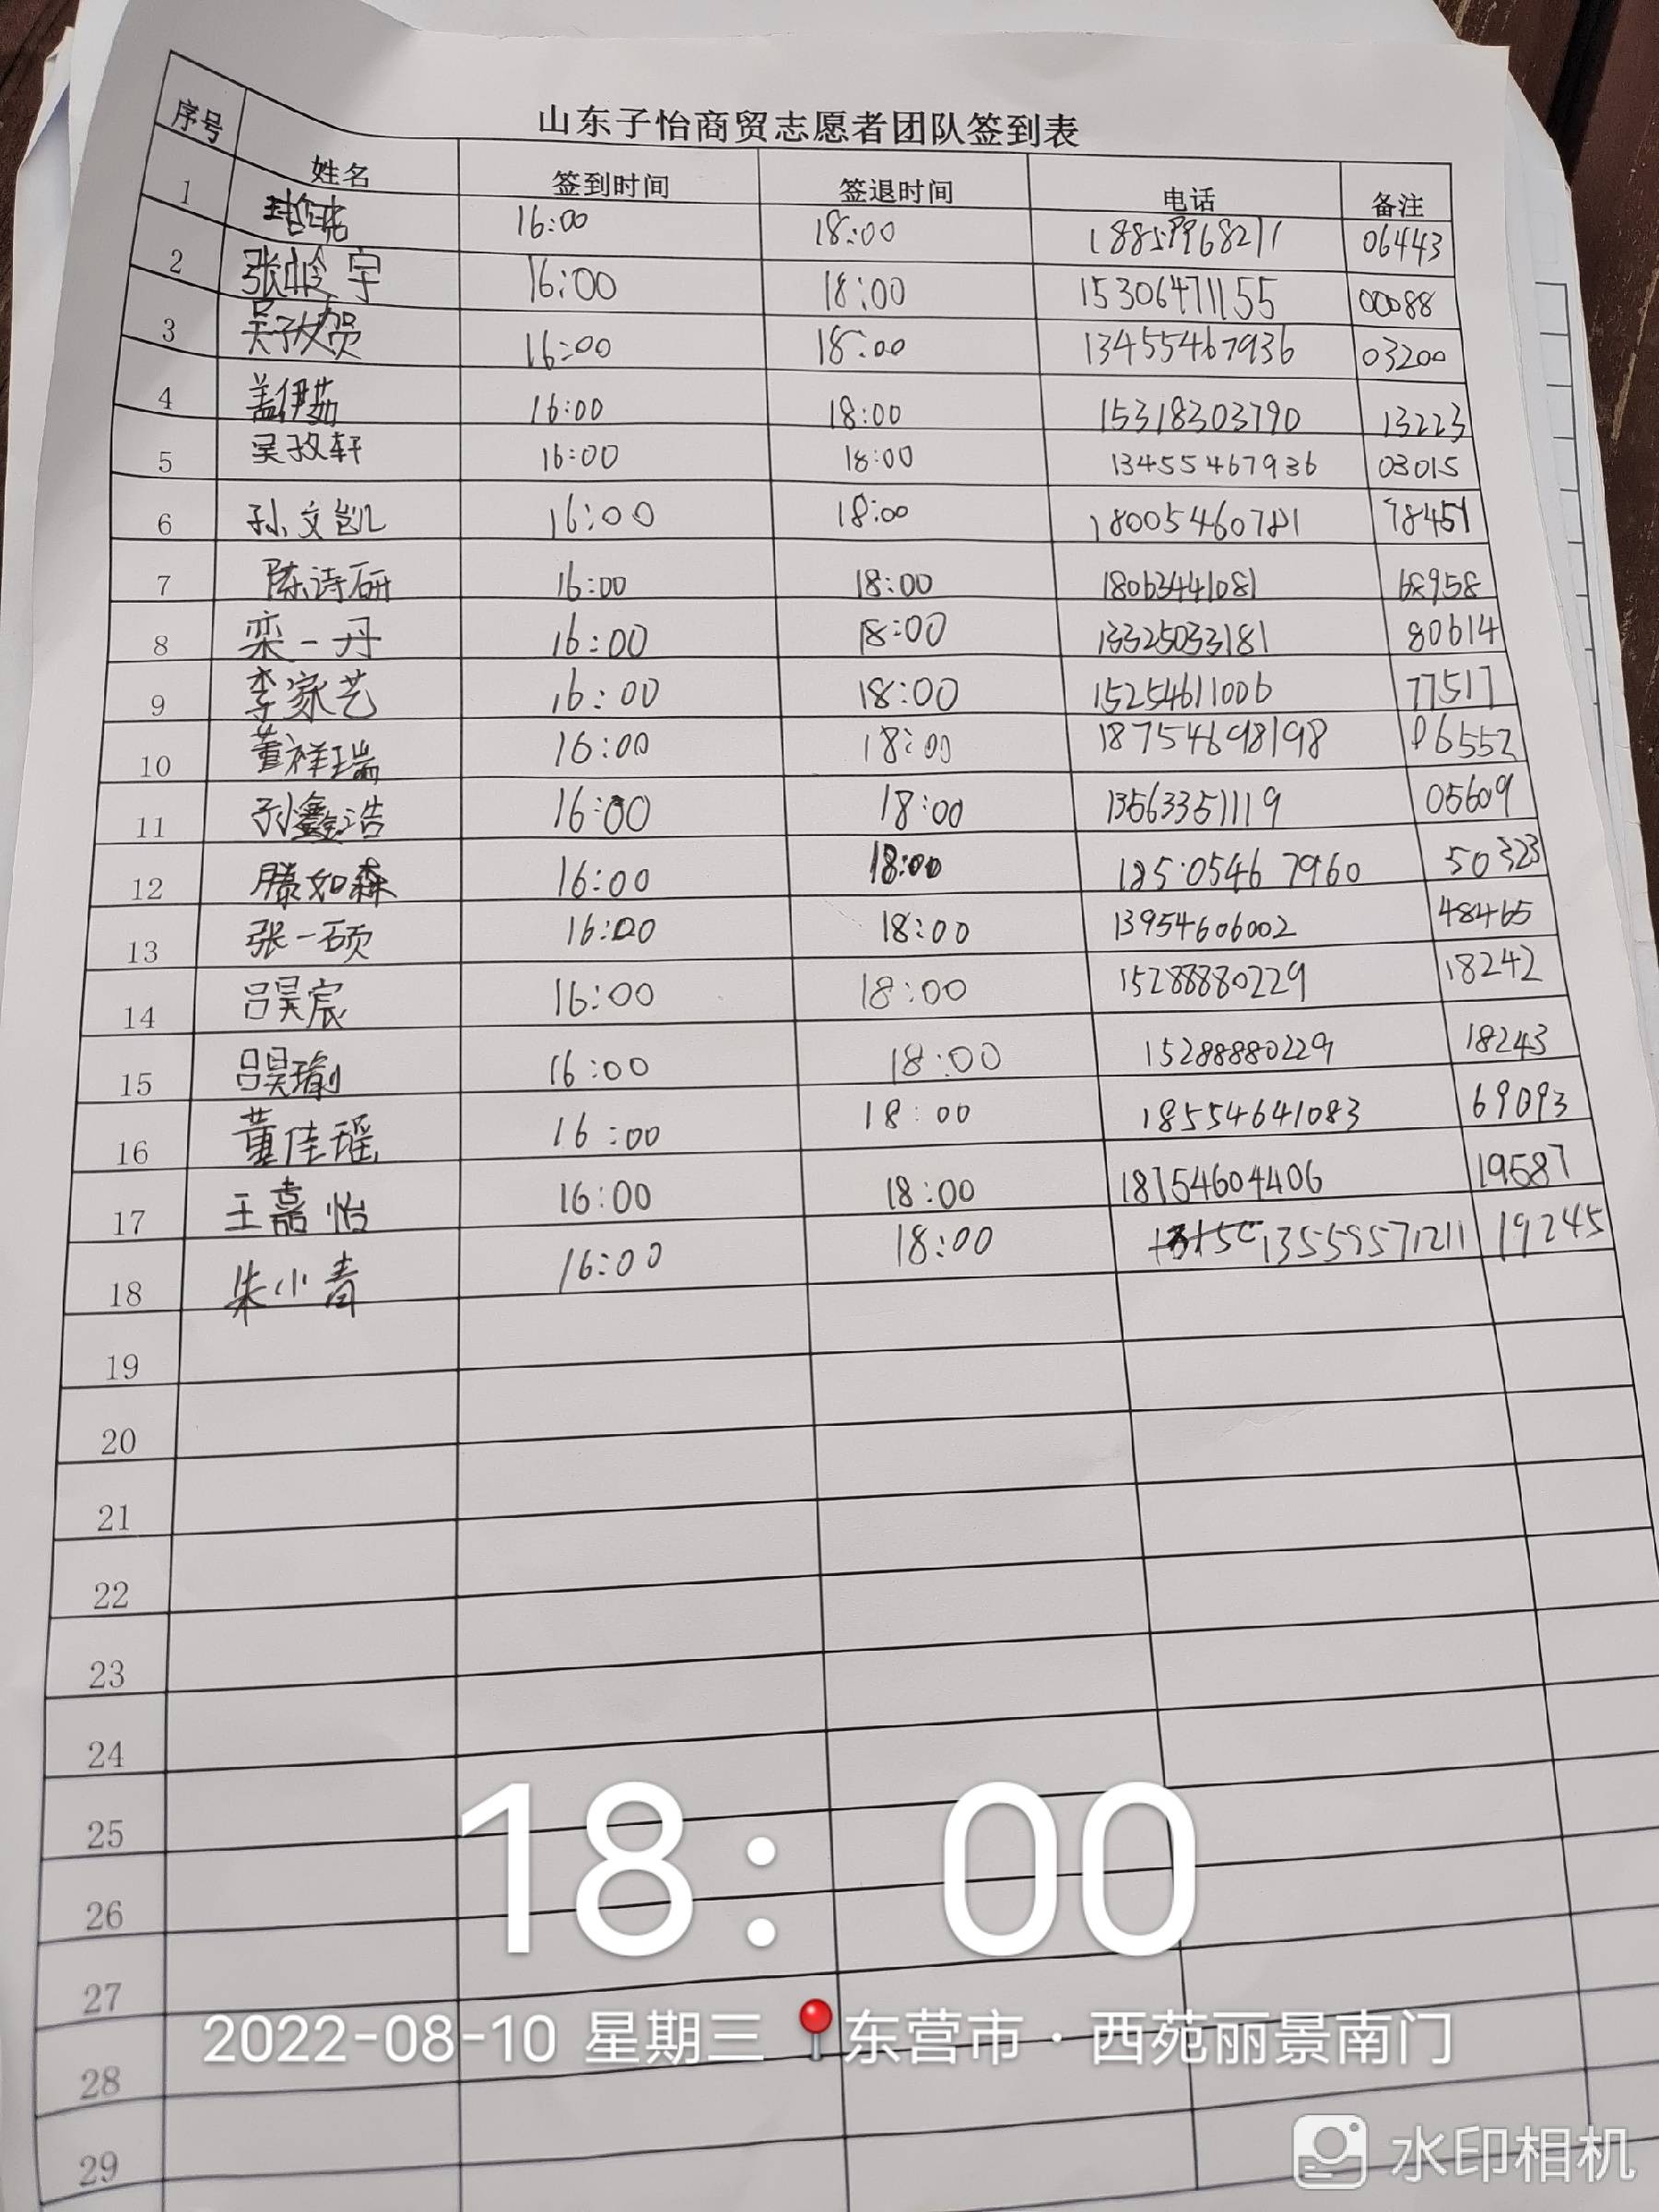 山东子怡商贸志愿者团队签到表
序号 姓名 签到时间 签退时间 电话 备注
1 16:00 18:00 06443
2 张岭宇 16:00 18:00 15306471155 00088
3 16:00 18:00 13455467936 03200
4 盖伊茹 16:00 18:00 15318303790 13223
5 吴孜轩 16:00 18:00 13455467936 03015
6 孙文凯 16:00 18:00 18005460781 78451
7 陈诗研 16:00 18:00 18063441081 68958
8 栾一丹 16:00 18:00 13325033181 80614
9 李家艺 16:00 18:00 15254611006 77517
10 董祥瑞 16:00 18:00 18754698198 06552
11 孙鑫浩 16:00 18:00 13563351119 05609
12 滕如森 16:00 18:00 18505467960 50323
13 张一硕 16:00 18:00 13954606002 48465
14 吕昊宸 16:00 18:00 15288880229 18242
15 吕昊瑜 16:00 18:00 15288880229 18243
16 董佳瑶 16:00 18:00 18554641083 69093
17 王嘉怡 16:00 18:00 18754604406 19587
18 朱小青 16:00 18:00 13559571211 19245
19
20
21
22
23
24
25
26
27
28
29
18:00
2022-08-10 星期三 东营市·西苑丽景南门
水印相机